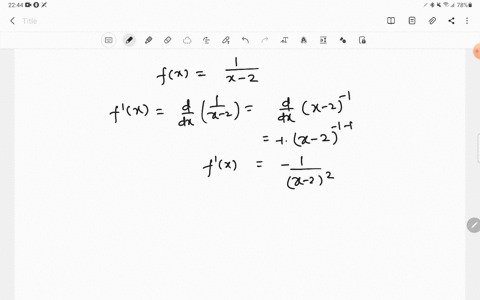 22:44 78%
Title
f(x) = 1/(x-2)
f'(x) = d/dx (1/(x-2)) = d/dx (x-2)^-1
= -1. (x-2)^-1-1
f'(x) = - 1/(x-2)^2